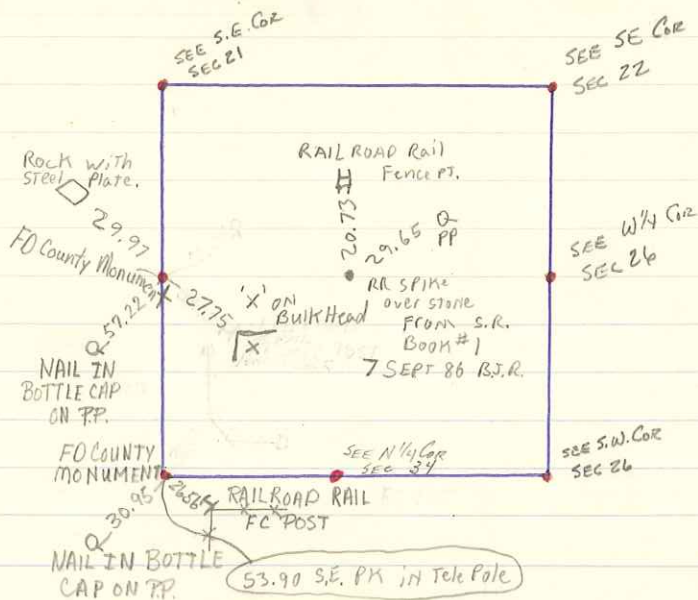 SEE S.E. COR
SEC 21
SEE SE COR
SEC 22
ROCK WITH
STEEL PLATE.
29.97
RAIL ROAD RAIL
FENCE PT.
20.73
29.65
PP
FD COUNTY MONUMENT
27.75
57.22
'X' ON
BULKHEAD
X
RR SPIKE
OVER STONE
FROM S.R.
BOOK #1
7 SEPT 86 B.J.R.
SEE W 1/4 COR
SEC 26
NAIL IN
BOTTLE CAP
ON P.P.
FD COUNTY
MONUMENT
SEE N 1/4 COR
SEC 34
SEE S.W. COR
SEC 26
30.95
26.56
RAILROAD RAIL
FC POST
NAIL IN BOTTLE
CAP ON P.P.
53.90 S.E. PK in Tele Pole